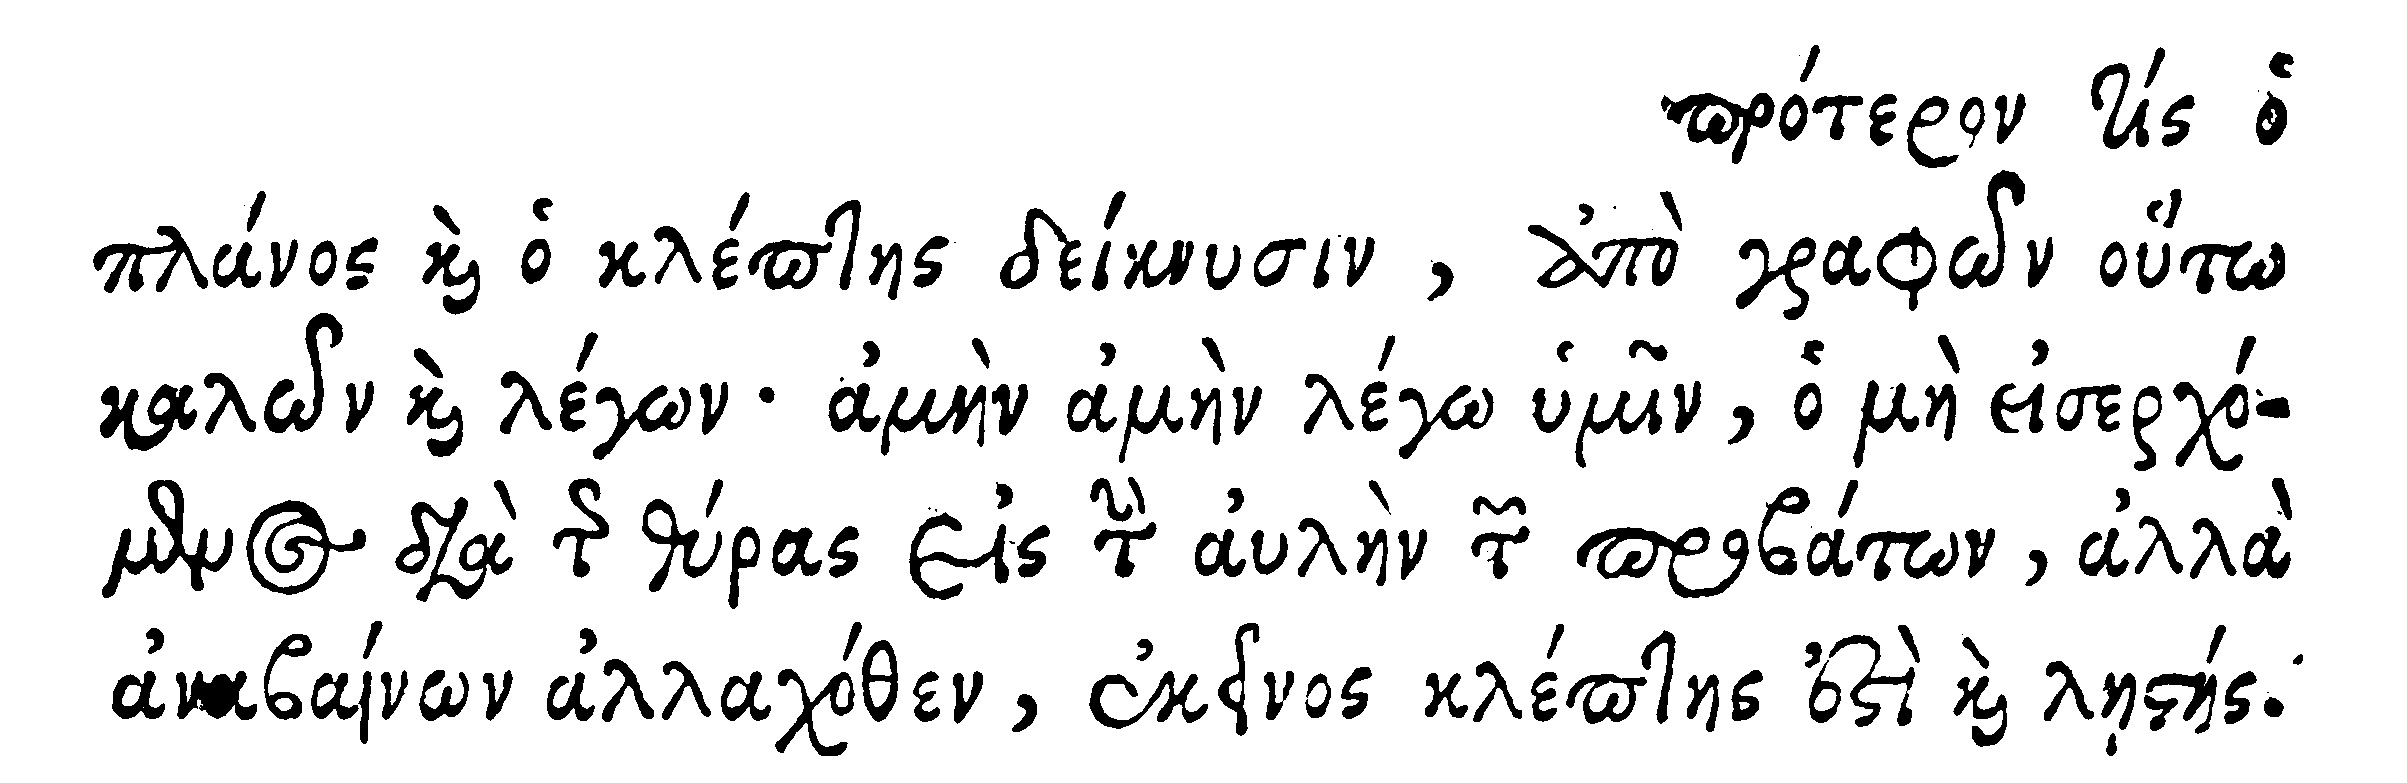 πρότερον τίς ὁ
πλάνος καὶ ὁ κλέπτης δείκνυσιν, ἀπὸ γραφῶν οὕτω
καλῶν καὶ λέγων· ἀμὴν ἀμὴν λέγω ὑμῖν, ὁ μὴ εἰσερχό-
μενος διὰ τῆς θύρας εἰς τὴν αὐλὴν τῶν προβάτων, ἀλλὰ
ἀναβαίνων ἀλλαχόθεν, ἐκεῖνος κλέπτης ἐστὶ καὶ λῃστής.